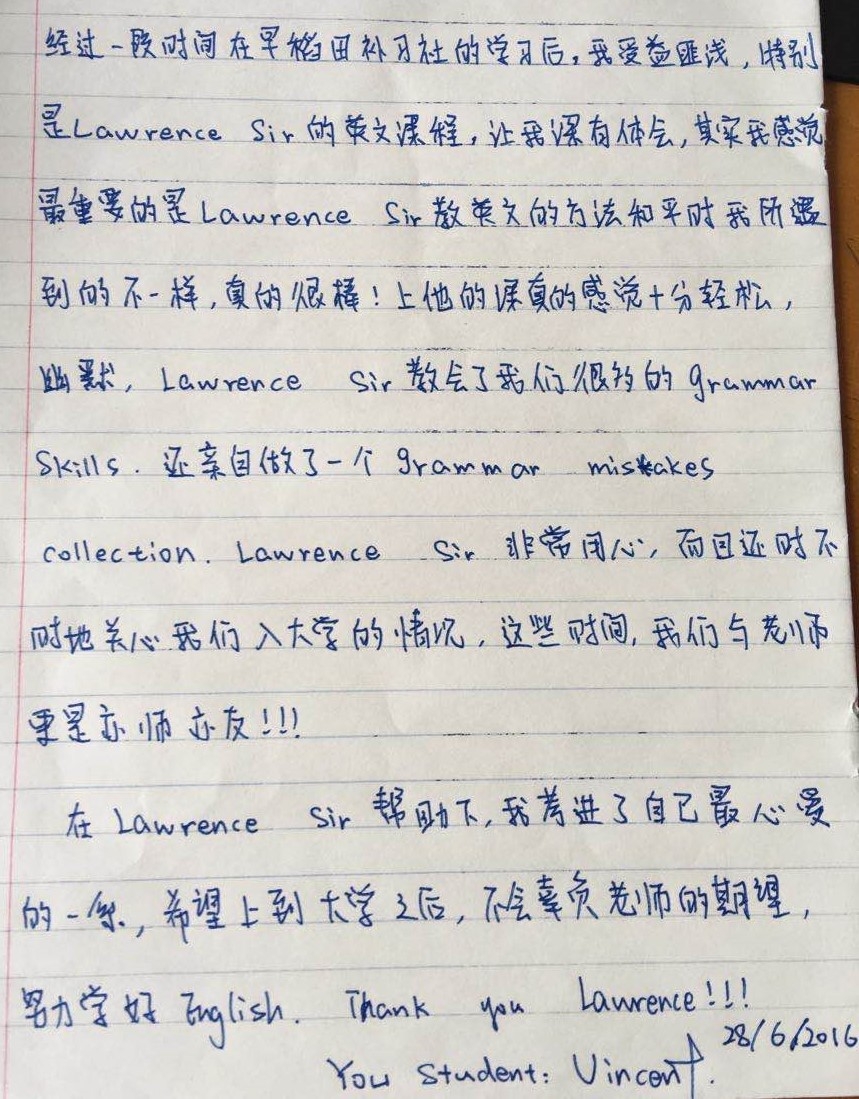 经过一段时间在早稻田补习社的学习后,我受益匪浅,特别
是Lawrence Sir的英文课程,让我深有体会,其实我感觉
最重要的是Lawrence Sir教英文的方法和平时我所遇
到的不一样,真的很棒!上他的课真的感觉十分轻松,
幽默, Lawrence Sir教会了我们很多的grammar
Skills. 还亲自做了一个 grammar mistakes
collection. Lawrence Sir 非常用心,而且还时不
时地关心我们入大学的情况,这些时间,我们与老师
更是亦师亦友!!!
在 Lawrence Sir 帮助下,我考进了自己最心爱
的一系,希望上到大学之后,不会辜负老师的期望,
努力学好 English. Thank you Lawrence!!!
28/6/2016
You Student: Vincent.